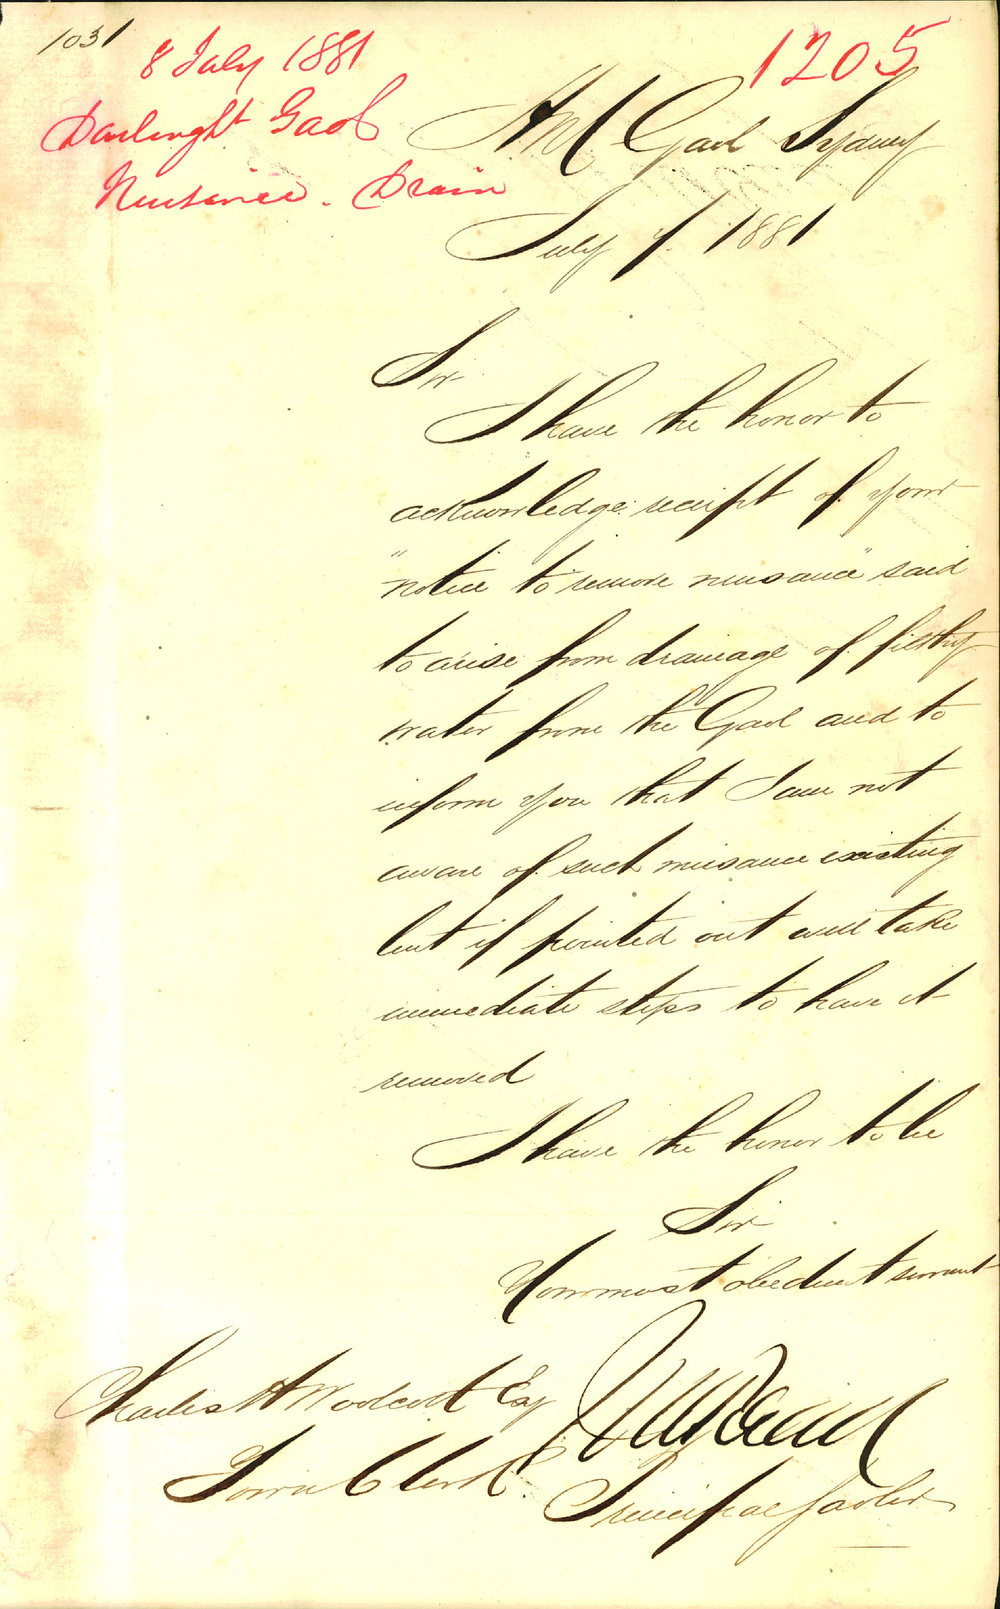 1031
1205
8 July 1881
Darlinght Gaol
Nuisance. Drain
H.M. Gaol Sydney
July 7. 1881
Sir
I have the honor to
acknowledge receipt of your
"notice to remove nuisance" said
to arise from drainage of filthy
water from the Gaol and to
inform you that I am not
aware of such nuisance existing
but if pointed out will take
immediate steps to have it
removed
I have the honor to be
Sir
Your most obedient servant
Principal Gaoler
Charles H Woolcott Esq
Town Clerk